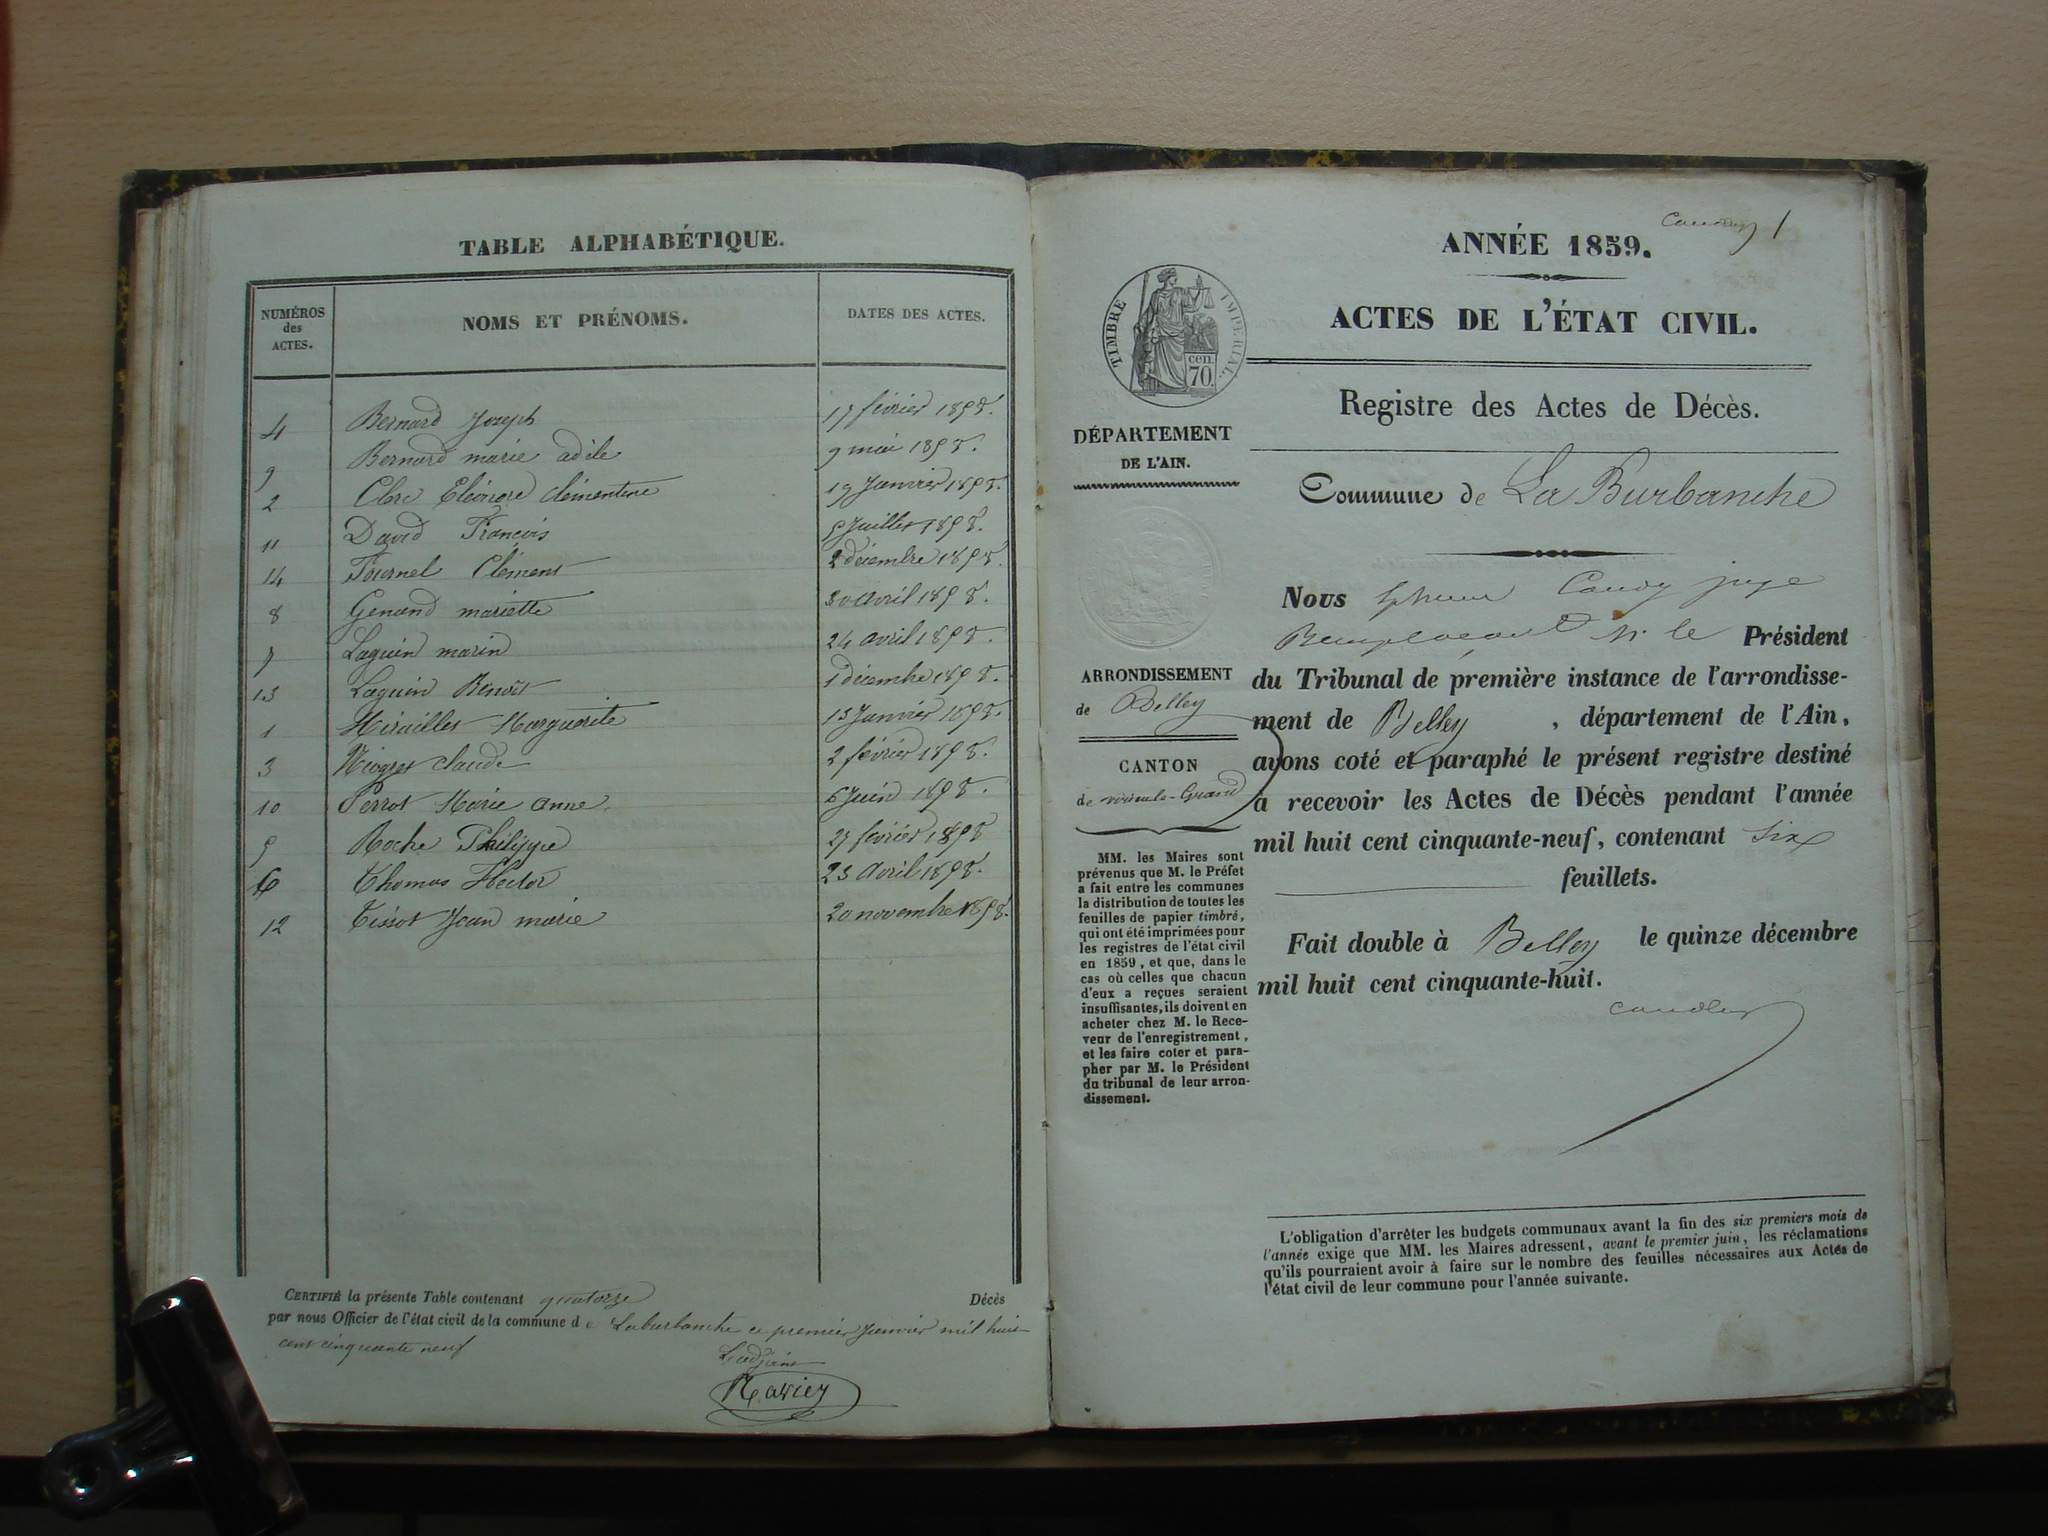 TABLE ALPHABÉTIQUE.
NUMÉROS des ACTES.
NOMS ET PRÉNOMS.
DATES DES ACTES.
4 Bernard Joseph 17 février 1858.
9 Bernard marie adèle 9 mai 1858.
2 Clerc Eléonore clémentine 19 Janvier 1858.
11 David François 5 Juillet 1858.
14 Fournel Clément 2 décembre 1858.
8 Genand mariette 30 avril 1858.
7 Laguin marin 24 avril 1858.
13 Laguin Benoit 1 décembre 1858.
1 Mirailler Marguerite 13 Janvier 1858.
3 Niogret claude 2 février 1858.
10 Perrot Marie anne. 6 Juin 1858.
5 Roche Philippe 27 février 1858
6 Thomas Hector 23 Avril 1858.
12 Tissot Jean marie 20 novembre 1858.
CERTIFIÉ la présente Table contenant quatorze Décès
par nous Officier de l'état civil de la commune de Laburbanche ce premier Janvier mil huit
cent cinquante neuf
L'adjoint
Ravier
1
ANNÉE 1859.
ACTES DE L'ÉTAT CIVIL.
TIMBRE IMPERIAL.
cen.
70.
Registre des Actes de Décès.
DÉPARTEMENT
DE L'AIN.
Commune de La Burbanche
ARRONDISSEMENT
de Belley
CANTON
de virieu-le-Grand
MM. les Maires sont
prévenus que M. le Préfet
a fait entre les communes
la distribution de toutes les
feuilles de papier timbré,
qui ont été imprimées pour
les registres de l'état civil
en 1859, et que, dans le
cas où celles que chacun
d'eux a reçues seraient
insuffisantes, ils doivent en
acheter chez M. le Rece-
veur de l'enregistrement,
et les faire coter et para-
pher par M. le Président
du tribunal de leur arron-
dissement.
Nous juge
Remplaçant M. le Président
du Tribunal de première instance de l'arrondisse-
ment de Belley, département de l'Ain,
avons coté et paraphé le présent registre destiné
à recevoir les Actes de Décès pendant l'année
mil huit cent cinquante-neuf, contenant six
feuillets.
Fait double à Belley le quinze décembre
mil huit cent cinquante-huit.
L'obligation d'arrêter les budgets communaux avant la fin des six premiers mois de
l'année exige que MM. les Maires adressent, avant le premier juin, les réclamations
qu'ils pourraient avoir à faire sur le nombre des feuilles nécessaires aux Actes de
l'état civil de leur commune pour l'année suivante.